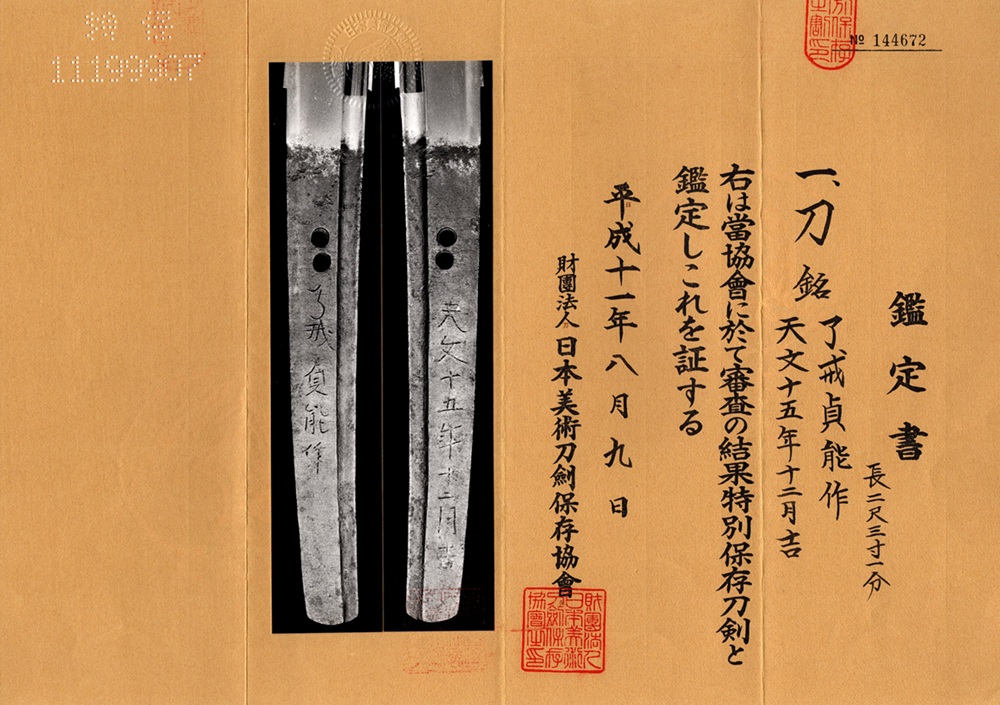 № 144672
鑑定書
長二尺三寸一分
一、刀 銘 了戒貞能作
天文十五年十二月吉
右は當協會に於て審査の結果特別保存刀剣と
鑑定しこれを証する
平成十一年八月九日
財團法人 日本美術刀劍保存協會
財團法人
日本美術
刀劍保存
協會之印
天文十五年十二月吉
了戒貞能作
特保
11199907